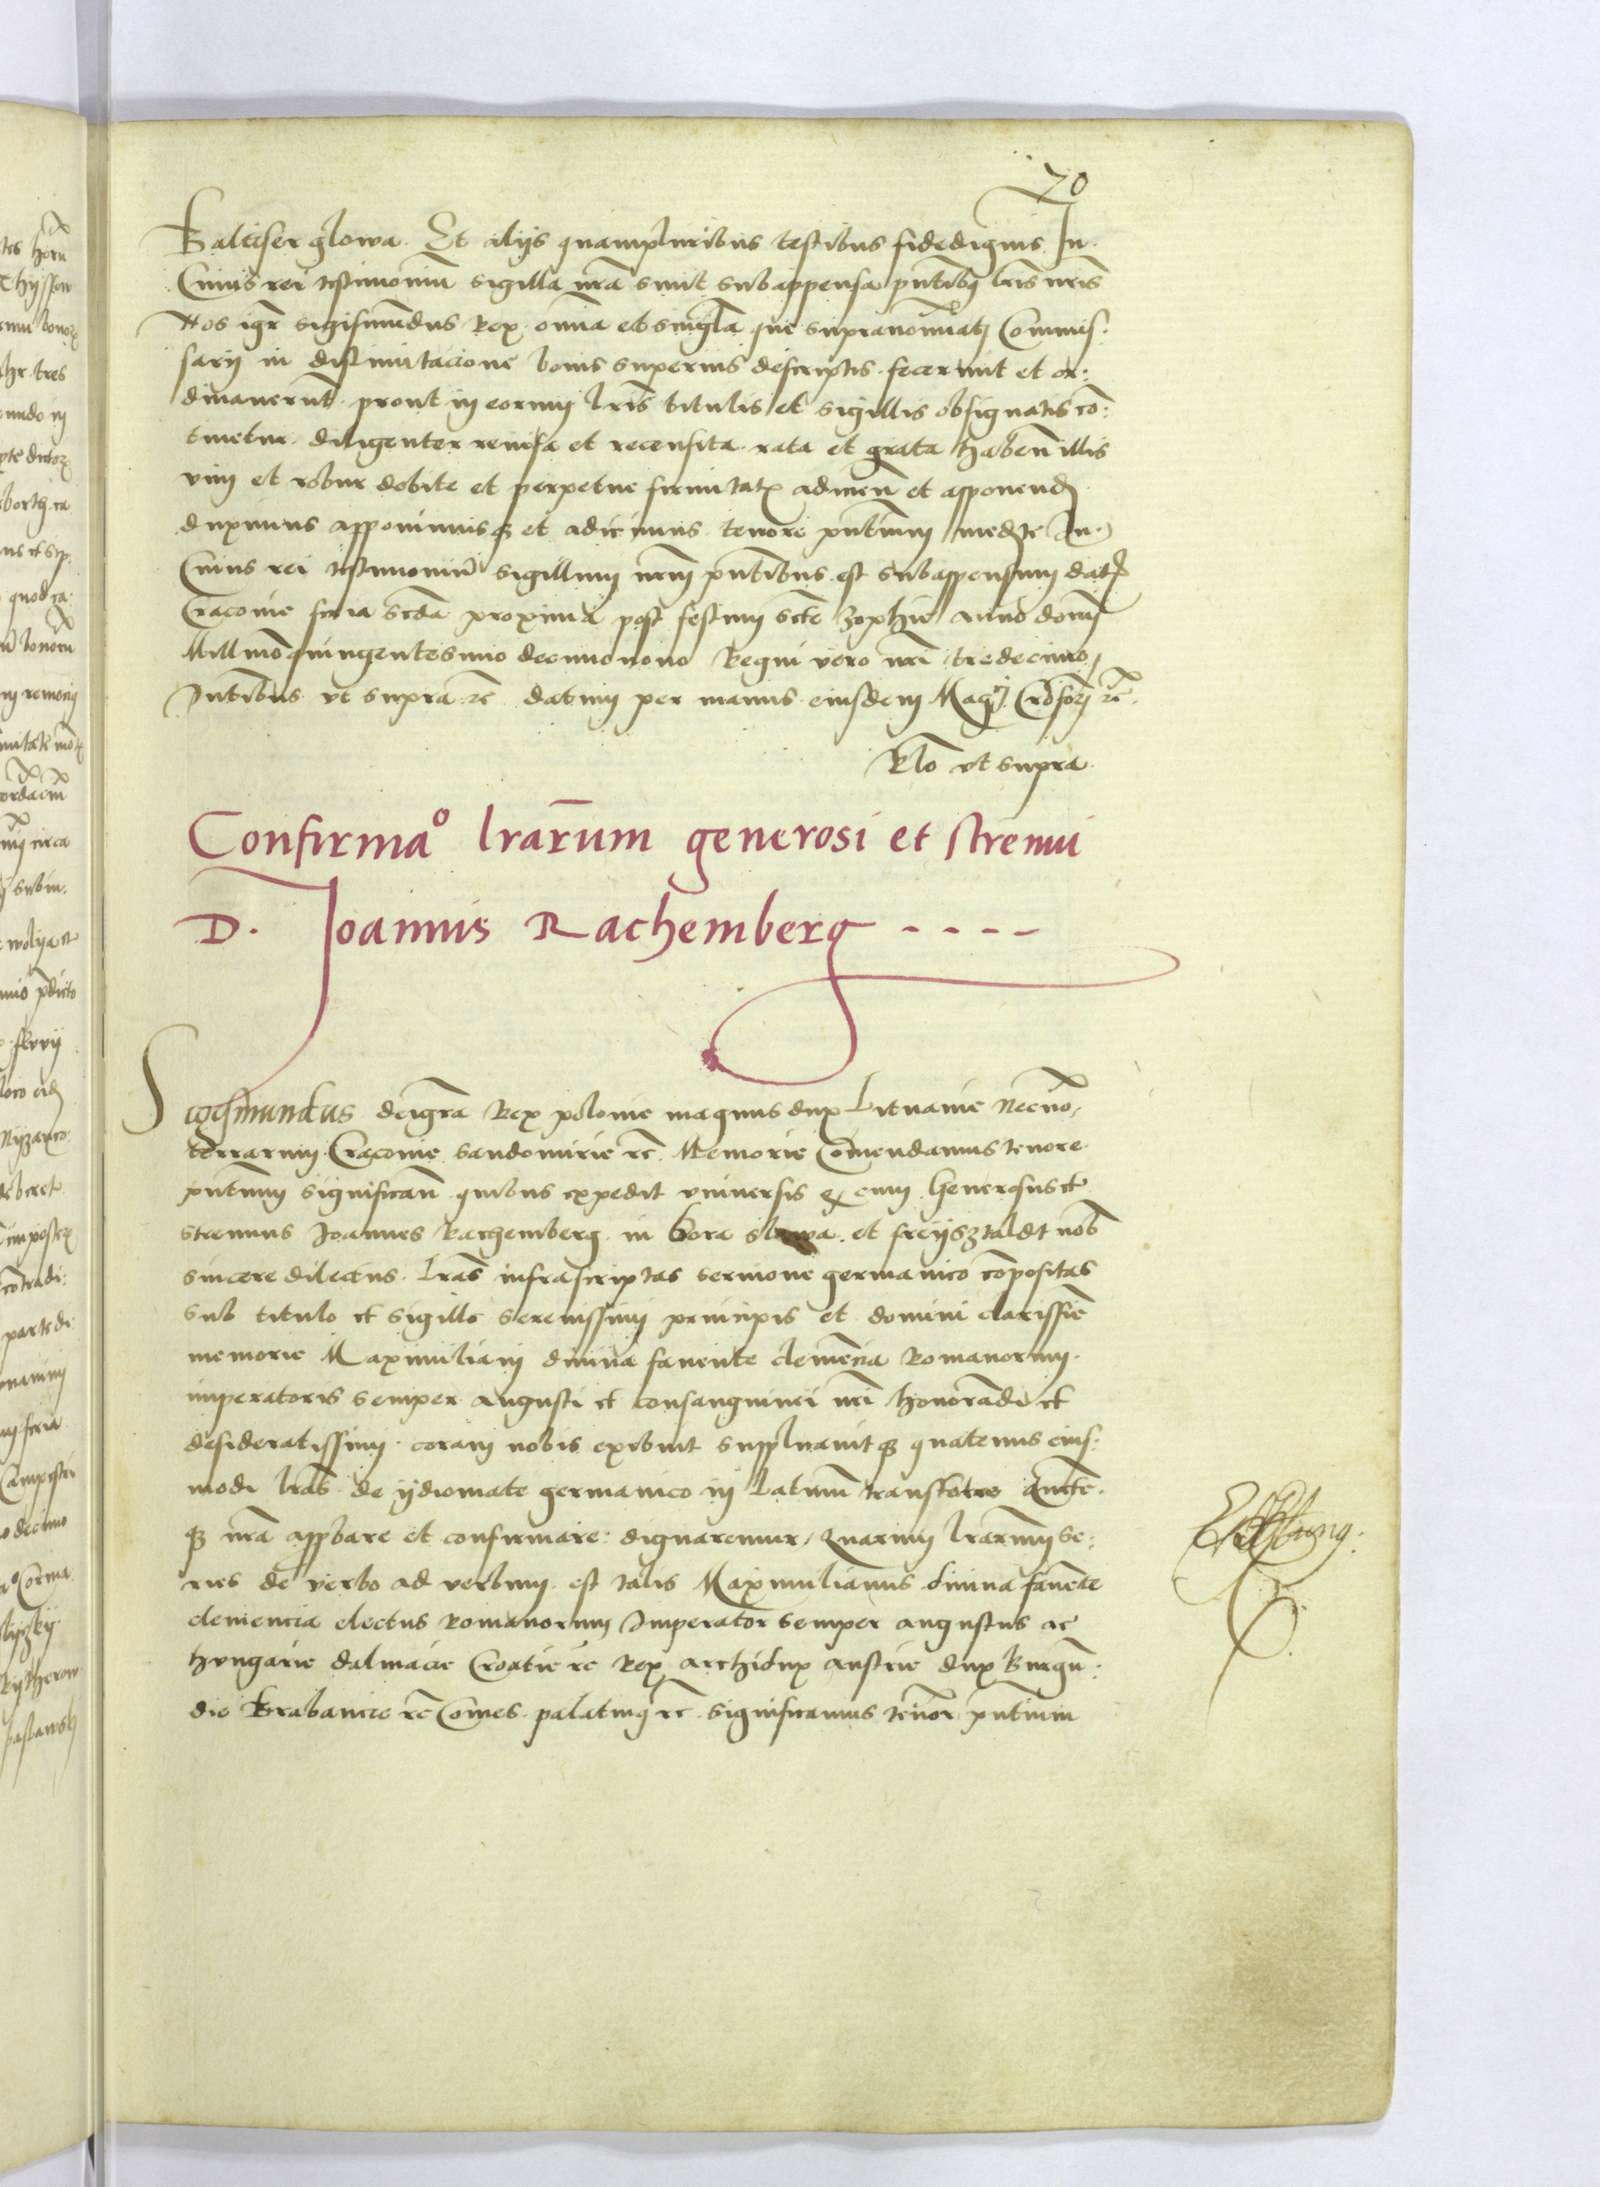 70
Baltiser glowa. Et alijs quampluribus testibus fidedignis In
Cuius rei testimonium sigilla nra sunt subappensa pntibus lris nris
Nos igr sigismundus Rex omnia et singla que supranominati Commis:
sarij in dislimitacione bonis superius descriptis fecerunt et or:
dinauerunt prout in eorum lris titulis et sigillis obsignatis co:
tinetur diligenter reuisa et recensita rata et grata haben illis
vim et robur debite et perpetue firmitatis adijcien et apponend
duximus apponimusq et adicimus tenore pntium mediante In
Cuius rei testimonium sigillum nrm pntibus est subappensum dat
Cracouie feria scda proxima post festum scte Zophie anno domi
Millmoquingentesimo decimonono Regni vero nri tredecimo
Pntibus vt supra rc datum per manus eiusdem Magci Crzisfori rc
Rlo vt supra
Confirmao lrarum generosi et strenui
D. Joannis Rachemberg - - - -
Sigismundus deigra Rex polonie magnus dux Lituanie Necno
terrarum Cracouie sandomirie rc Memorie Comendamus tenore
pntium significan quibus expedit vniuersis Q enim Generosus et
strenuus Joannes Rachemberg in Bora slawa et freijsztaldt nob
sincere dilectus lras infrascriptas sermone germanico compositas
sub titulo et sigillo serenissimi principis et domini clarissie
memorie Maximiliani diuina fauente clemencia Romanorum
imperatoris semper augusti et consanguinei nri honorandi et
desideratissimi coram nobis exibuit supplicauitq quatenus eius:
modi lras de ijdiomate germanico in latinum transferre aucte:
q nra approbare et confirmare dignaremur, Quarum lrarum se:
ries de verbo ad verbum est talis Maximilianus diuina fauente
clemencia electus Romanorum Imperator semper augustus ac
hungarie dalmacie Croatie rc Rex archidux austrie dux Burgun:
die Brabancie rc Comes palatinq rc significamus tenore pntium